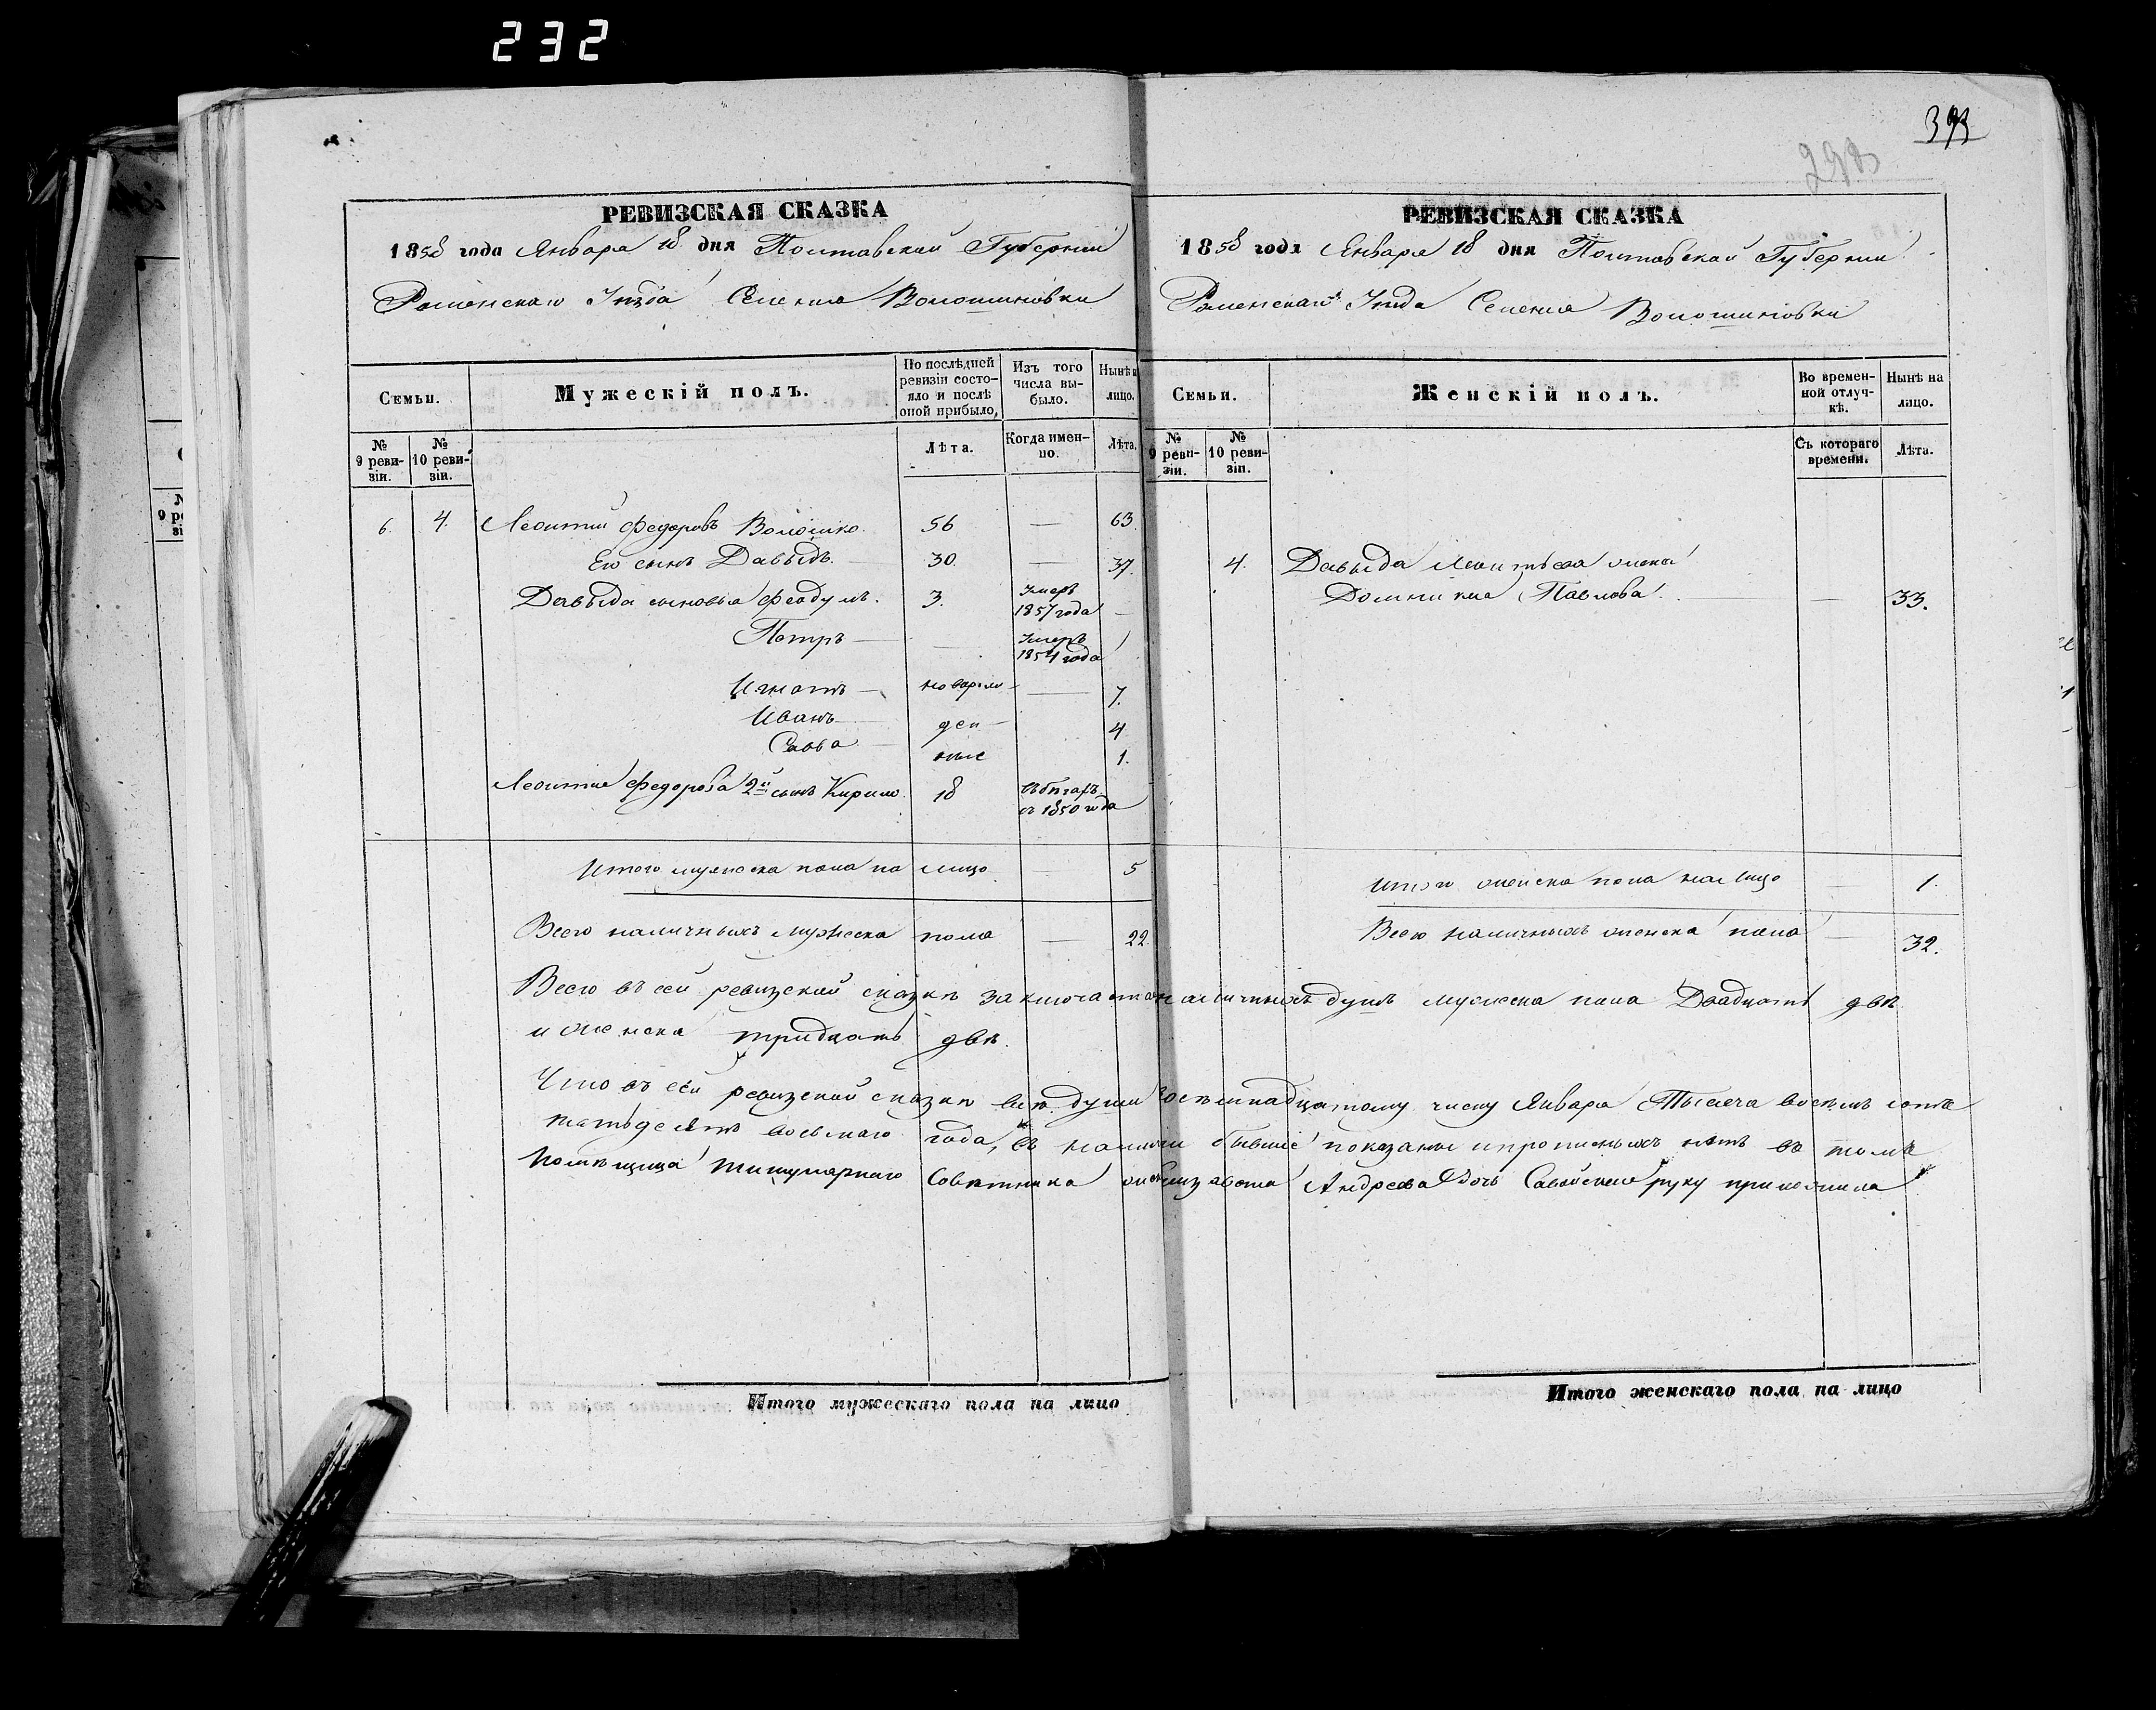 232
393
293
РЕВИЗСКАЯ СКАЗКА
1858 года Января 18 дня Полтавской Губерніи
Роменскаго Уѣзда Селенія Волошиновки
Семьи.
Мужескій полъ.
По послѣдней ревизіи состо-
яло и послѣ оной прибыло,
Изъ того числа вы-
было.
Нынѣ н
лицо.
№ 9 реви-
зіи.
№ 10 реви-
зіи.
Лѣта.
Когда имен-
но.
Лѣта.
6. 4. Леонтий Федоровъ Волошко. 56 — 63.
Его сынъ Давыдъ. — 30. — 37.
Давыда сыновья Феодулъ. 3. Умеръ 1857 года —
Петръ — — Умеръ 1854 года
Игнатъ — новорож — 7.
Иванъ — ден — 4
Савва — ные 1.
Леонтия Федорова 2й сынъ Кирило. 18 въ бѣгахъ съ 1850 года
Итого мужеска пола на лицо — 5
Всего наличныхъ мужеска пола — 22.
РЕВИЗСКАЯ СКАЗКА
1858 года Января 18 дня Полтавской Губерніи
Роменскаго Уѣзда Селенія Волошиновки
Семьи.
Женскій полъ.
Во времен-
ной отлуч-
кѣ.
Нынѣ на
лицо.
№ 9 реви-
зіи.
№ 10 реви-
зіи.
Съ котораго
времени.
Лѣта.
4. Давыда Леонтьева жена
Домникия Павлова. — 33.
Итого женска пола на лицо 1.
Всего наличныхъ женска пола — 32.
Всего въ сей ревизской сказкѣ заключается наличныхъ душъ мужеска пола Двадцать двѣ
и женска тридцать двѣ.
Что въ сей ревизской сказкѣ всѣ души к осемнадцатому числу Января Тысяча восемь сотъ
пятьдесятъ восьмаго года, въ наличи бывшіе показаны и прописныхъ нѣтъ въ томъ
Помѣщица титулярнаго Совѣтника жена Андреева дочь руку приложила
Итого мужескаго пола на лицо
Итого женскаго пола на лицо